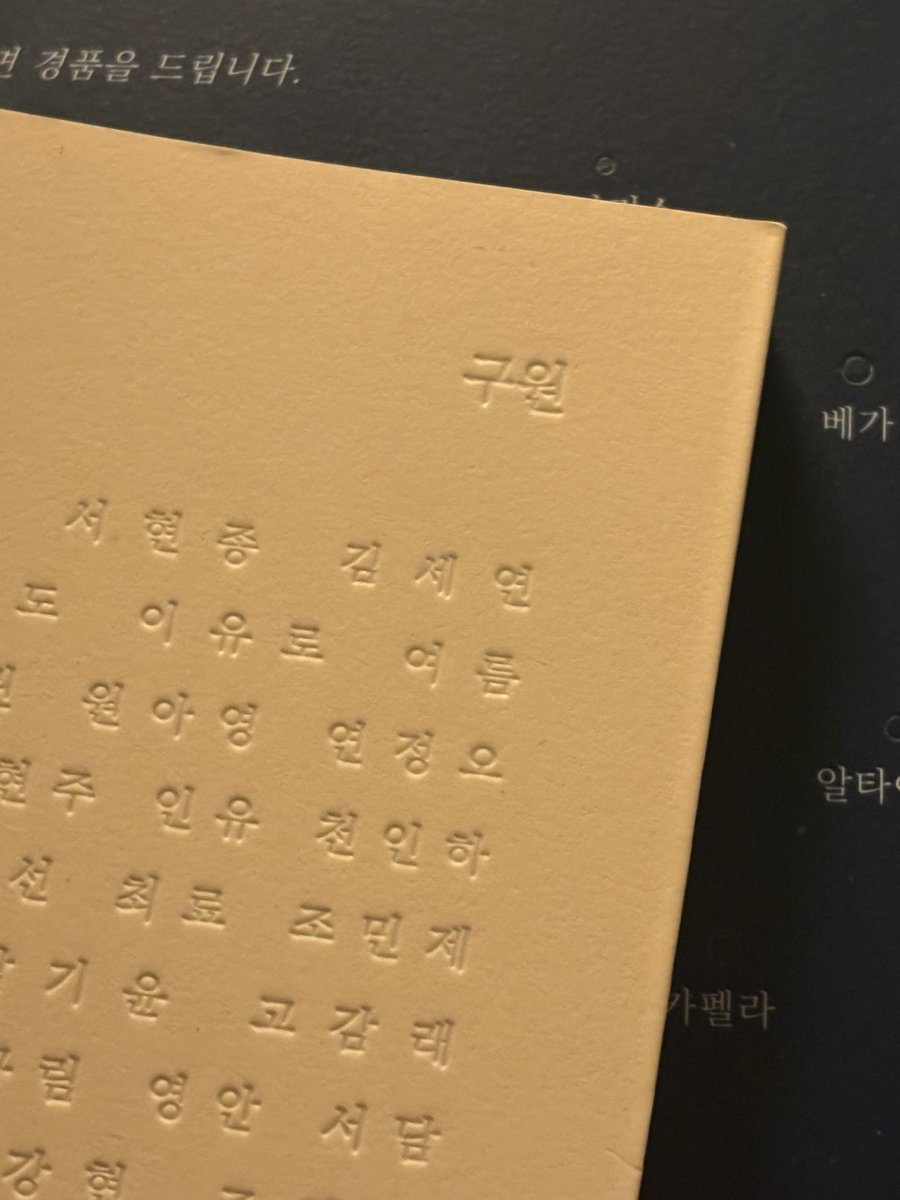 면 경품을 드립니다.
구원
베가
서현종 김세연
도 이유로 여름
원아영 연정오
알타
현주 인유 천인하
선 최료 조민제
가펠라
기윤 고감래
림 영안 서담
강현